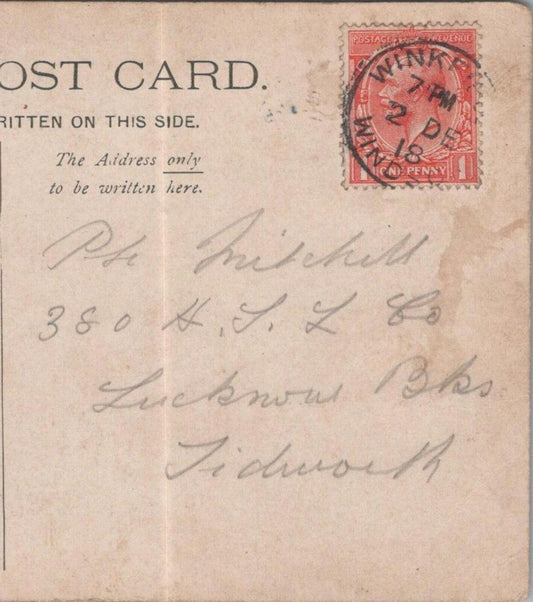 OST CARD.
RITTEN ON THIS SIDE.
The Address only
to be written here.
POSTAGE REVENUE
WINKE
7 PM
2 DE
18
ONE PENNY 1
Pte Mitchell
380 H.S.L Co
Lucknow Bks
Tidworth